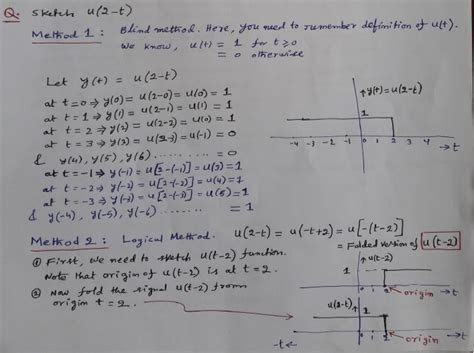 Q: Sketch u(2-t)
Method 1: Blind method. Here, you need to remember definition of u(t).
We know, u(t) = 1 for t≥0
= 0 otherwise
Let y(t) = u(2-t)
at t=0 ⇒ y(0) = u(2-0) = u(0) = 1
at t=1 ⇒ y(1) = u(2-1) = u(1) = 1
at t=2 ⇒ y(2) = u(2-2) = u(0) = 1
at t=3 ⇒ y(3) = u(2-3) = u(-1) = 0
& y(4), y(5), y(6) ......... = 0
at t=-1 ⇒ y(-1) = u[2-(-1)] = u(3) = 1
at t=-2 ⇒ y(-2) = u[2-(-2)] = u(4) = 1
at t=-3 ⇒ y(-3) = u[2-(-3)] = u(5) = 1
& y(-4), y(-5), y(-6) ......... = 1
↑y(t)=u(2-t)
1
-4 -3 -2 -1 0 1 2 3 4 →t
Method 2: Logical Method. u(2-t) = u(-t+2) = u[-(t-2)]
= Folded version of u(t-2)
① First, we need to sketch u(t-2) function.
Note that origin of u(t-2) is at t=2.
② Now fold the signal u(t-2) from
origin t=2.
↑u(t-2)
1
0 1 2 →t
origin
u(2-t)↑
1
-t← 0 1 2 →t
origin